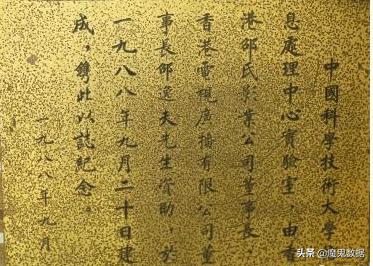 中國科學技術大學
息處理中心實驗室，由香
港邵氏影業公司董事長
香港電視廣播有限公司董
事長邵逸夫先生資助，於
一九八八年九月二十日建
成，鐫此以誌紀念。
一九八八年九月
头条 @魔鬼数据